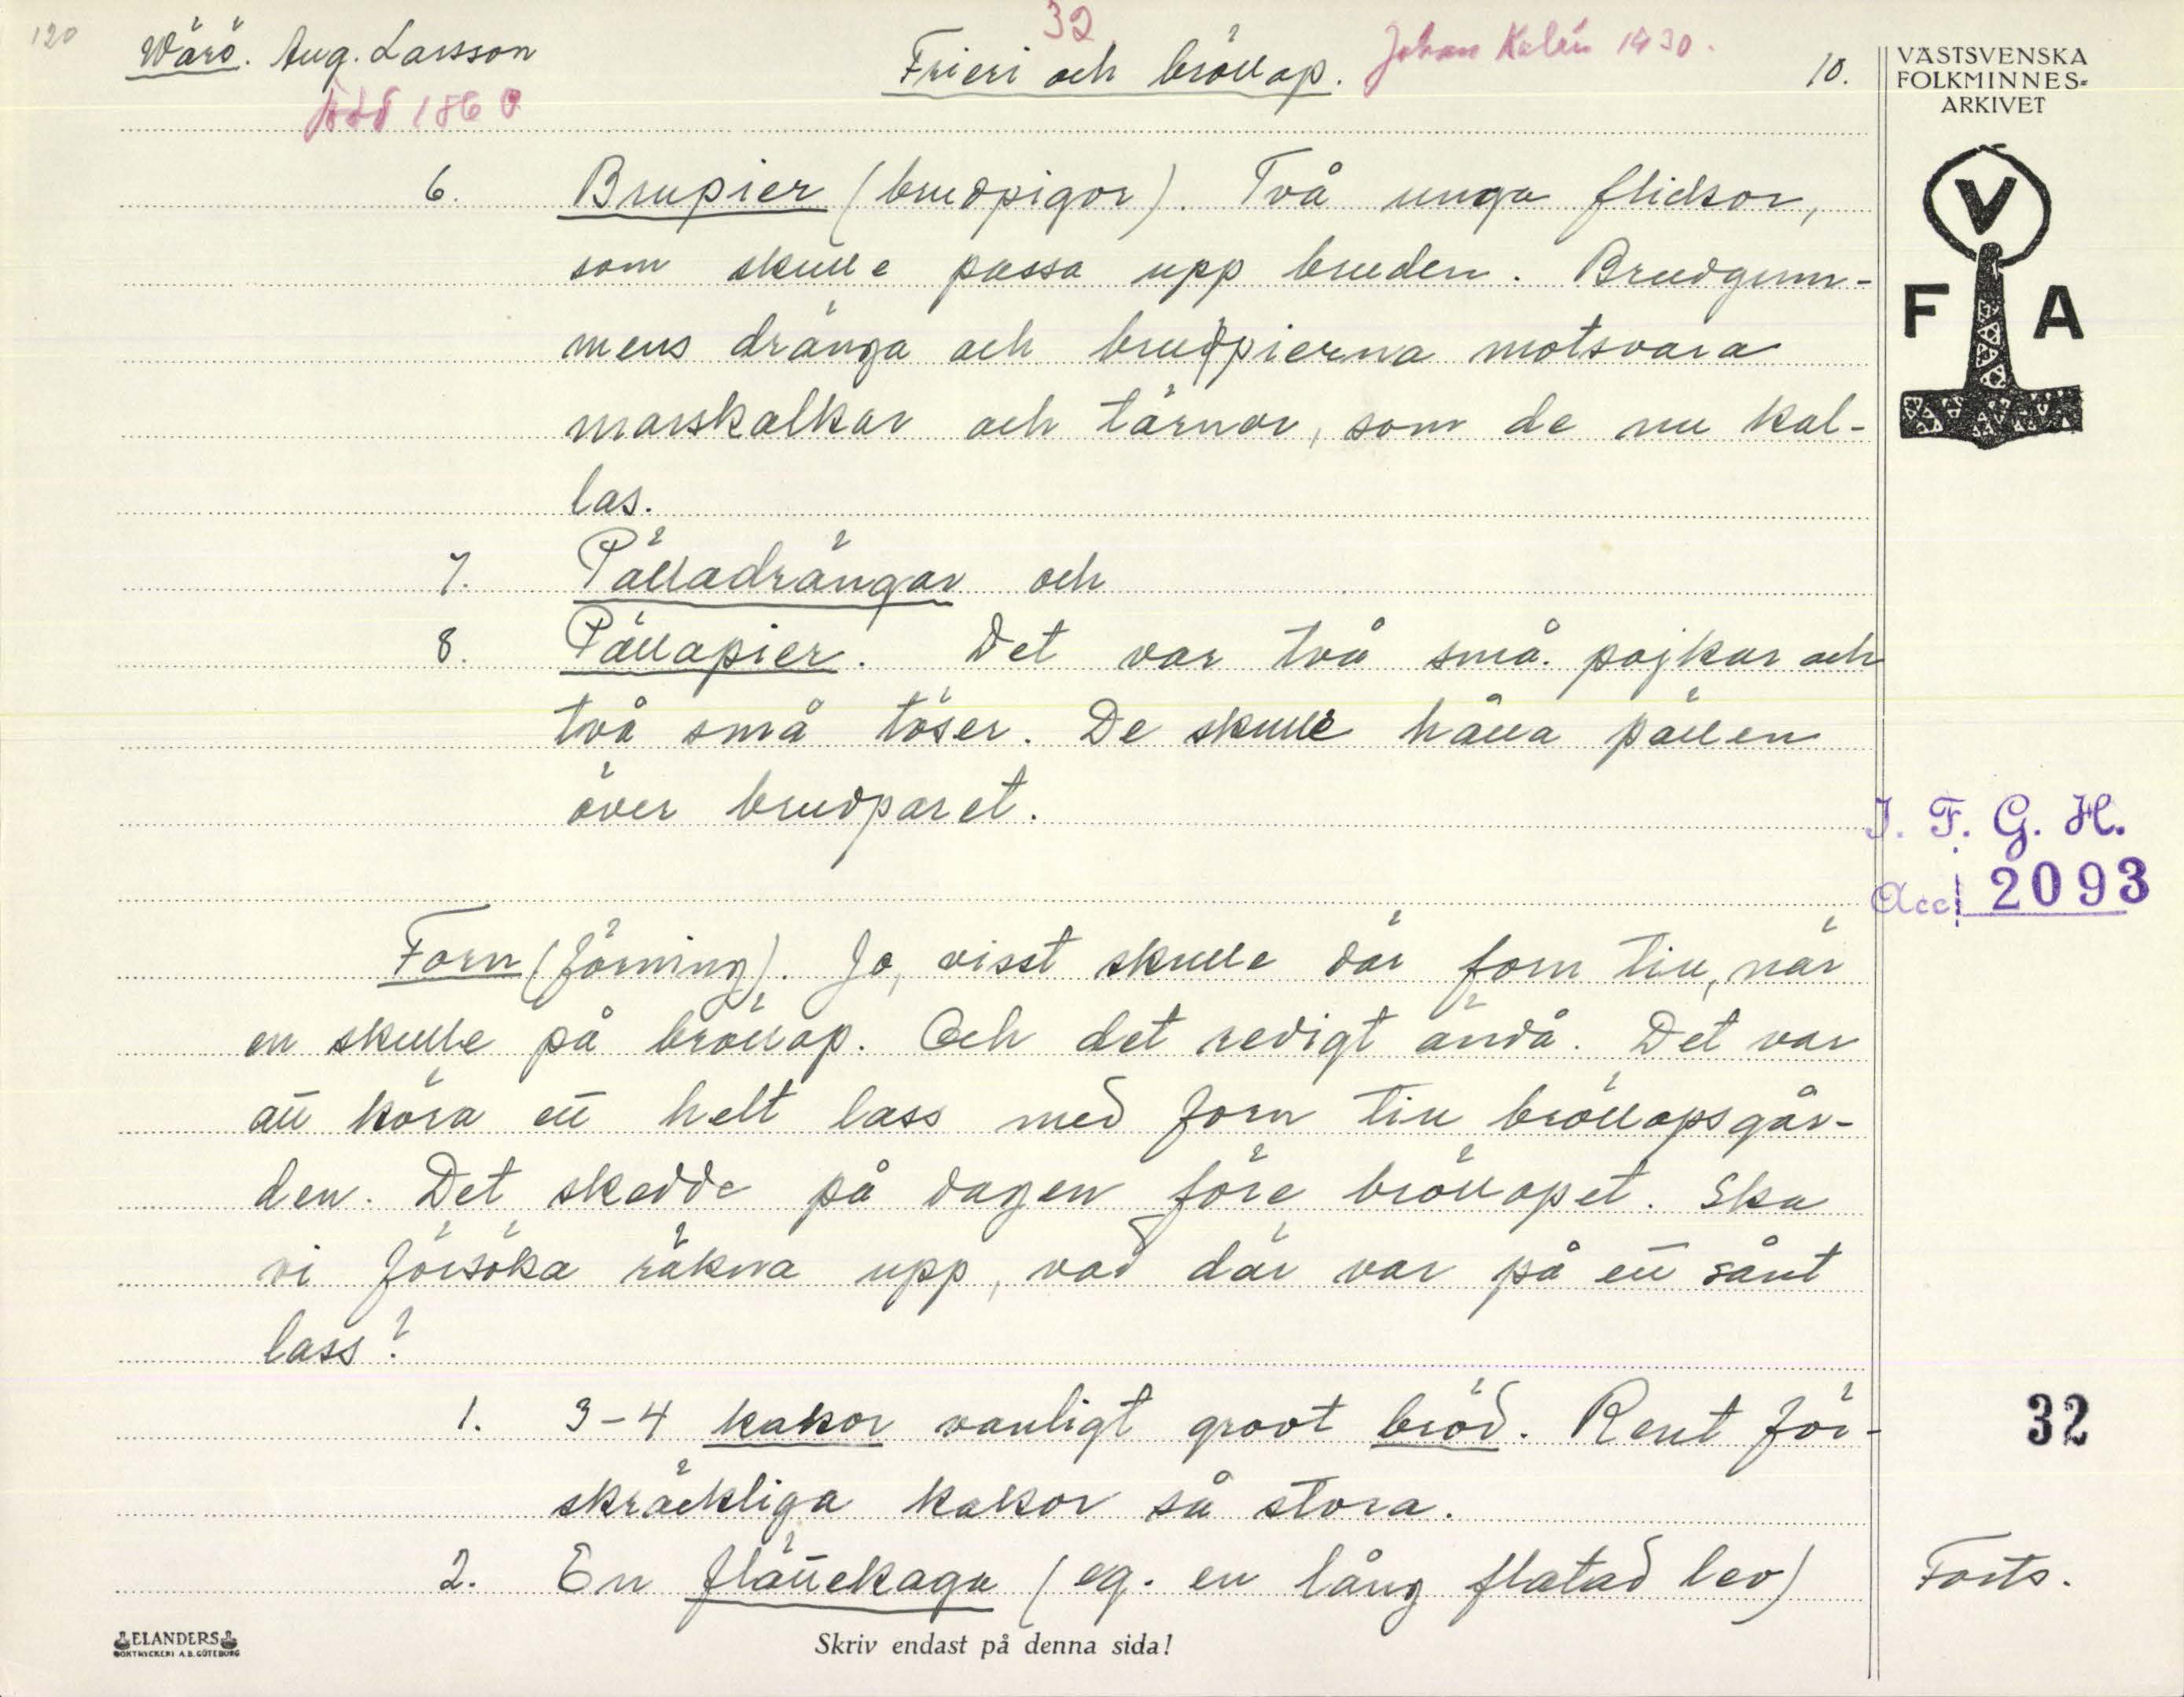 120
Wärö. Aug. Larsson
Född 1860
32
Frieri och bröllop.
Johan Kalén 1930.
10.
VÄSTSVENSKA
FOLKMINNES-
ARKIVET
V
F A
6. Brupier (brudpigor). Två unga flickor,
som skulle passa upp bruden. Brudgum-
mens dränga och brudpierna motsvara
marskalkar och tärnor, som de nu kal-
las.
7. Pälladrängar och
8. Pällapier. Det var två små pojkar och
två små töser. De skulle hålla pällen
över brudparet.
I. F. G. H.
Acc. 2093
Forn (förning). Jo, visst skulle där forn till, när
en skulle på bröllop. Och det redigt ändå. Det var
att köra ett helt lass med forn till bröllopsgår-
den. Det skedde på dagen före bröllopet. Ska
vi försöka räkna upp, vad där var på ett sånt
lass?
1. 3-4 kakor vanligt grovt bröd. Rent för-
skräckliga kakor så stora.
32
2. En flättekaga (eg. en lång flatad lev)
Forts.
ELANDERS
BOKTRYCKERI A.B. GÖTEBORG
Skriv endast på denna sida!